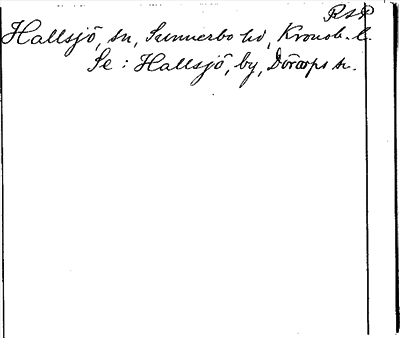 Hallsjö, sn, Sunnerbo hd, Kronob. l.
Se : Hallsjö, by, Dörarps sn.